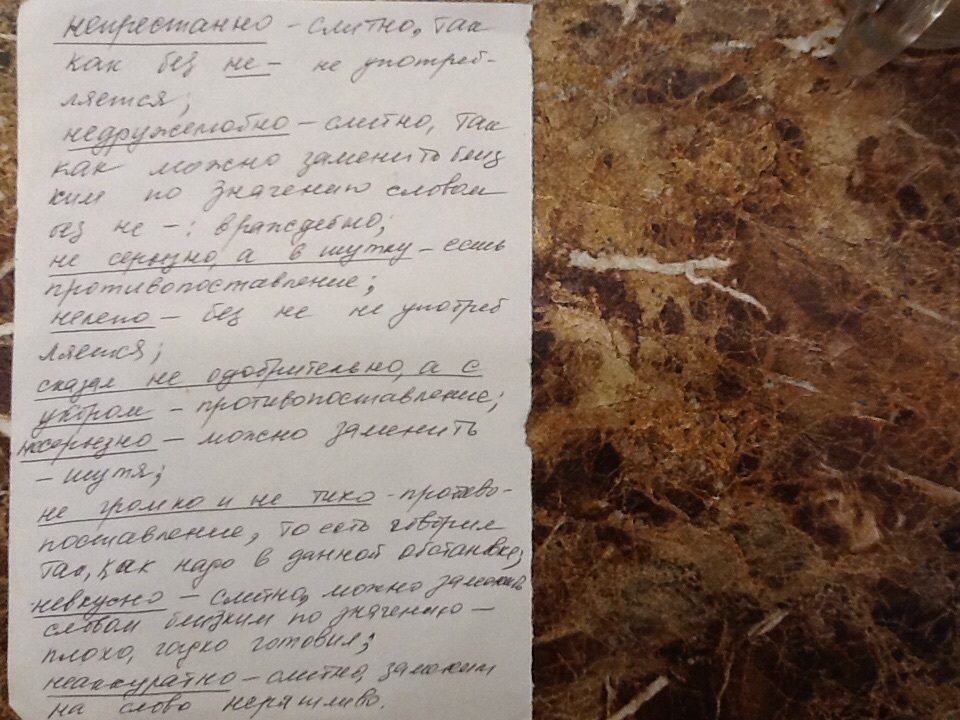 непрестанно – слитно, так
как без не – не употреб-
ляется;
недружелюбно – слитно, так
как можно заменить близ
ким по значению словом
без не – : враждебно;
не серьезно, а в шутку – есть
противопоставление;
нелепо – без не не употреб
ляется;
сказал не одобрительно, а с
укором – противопоставление;
несерьезно – можно заменить
– шутя;
не громко и не тихо – противо-
поставление, то есть говорил
так, как надо в данной обстановке;
невкусно – слитно, можно заменить
словом близким по значению –
плохо, готовил;
неаккуратно – слитно, заменим
на слово неряшливо.